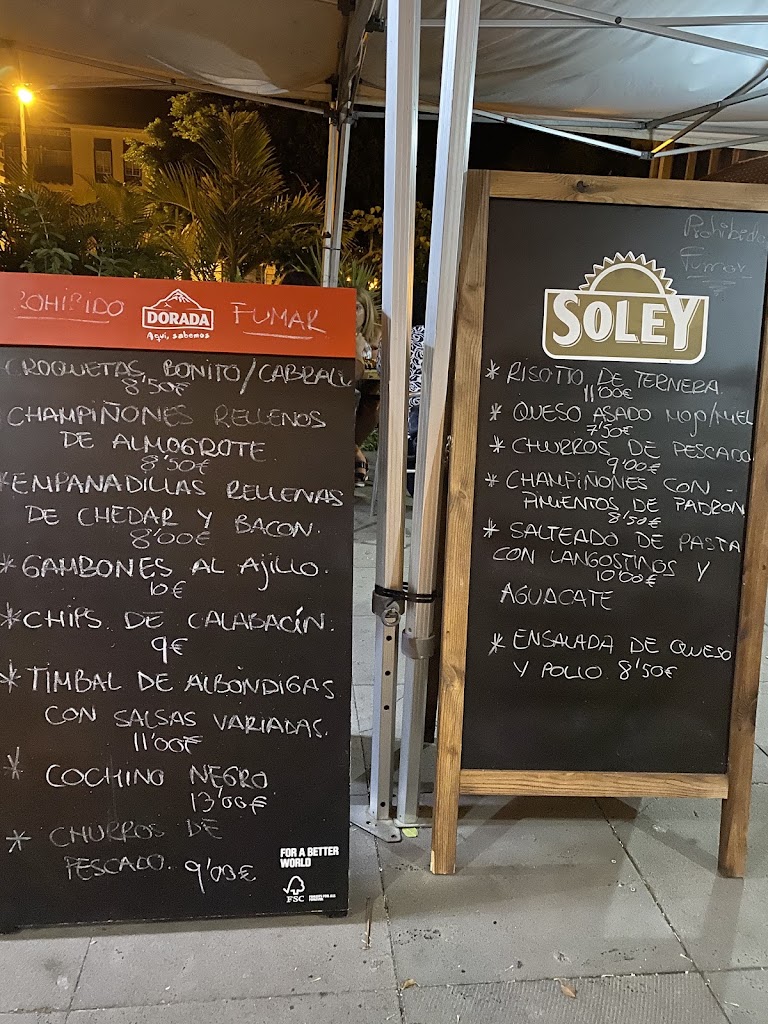 ROHIBIDO
DORADA
Aquí, sabemos
FUMAR
CROQUETAS BONITO/CABRALE
8'50€
CHAMPIÑONES RELLENOS
DE ALMOGROTE
8'50€
*EMPANADILLAS RELLENAS
DE CHEDAR Y BACON.
8'00€
*GAMBONES AL AJILLO.
10€
*CHIPS DE CALABACÍN.
9€
*TIMBAL DE ALBÓNDIGAS
CON SALSAS VARIADAS.
11'00€
* COCHINO NEGRO
13'00€
* CHURROS DE
PESCADO. 9'00€
FOR A BETTER
WORLD
FSC
Prohibido
Fumar
SOLEY
* RISOTTO DE TERNERA.
11'00€
* QUESO ASADO MOJO/MIEL
7'50€
* CHURROS DE PESCADO
9'00€
* CHAMPIÑONES CON -
PIMIENTOS DE PADRÓN
8'50€
* SALTEADO DE PASTA
CON LANGOSTINOS Y
10'00€
AGUACATE
* ENSALADA DE QUESO
Y POLLO. 8'50€